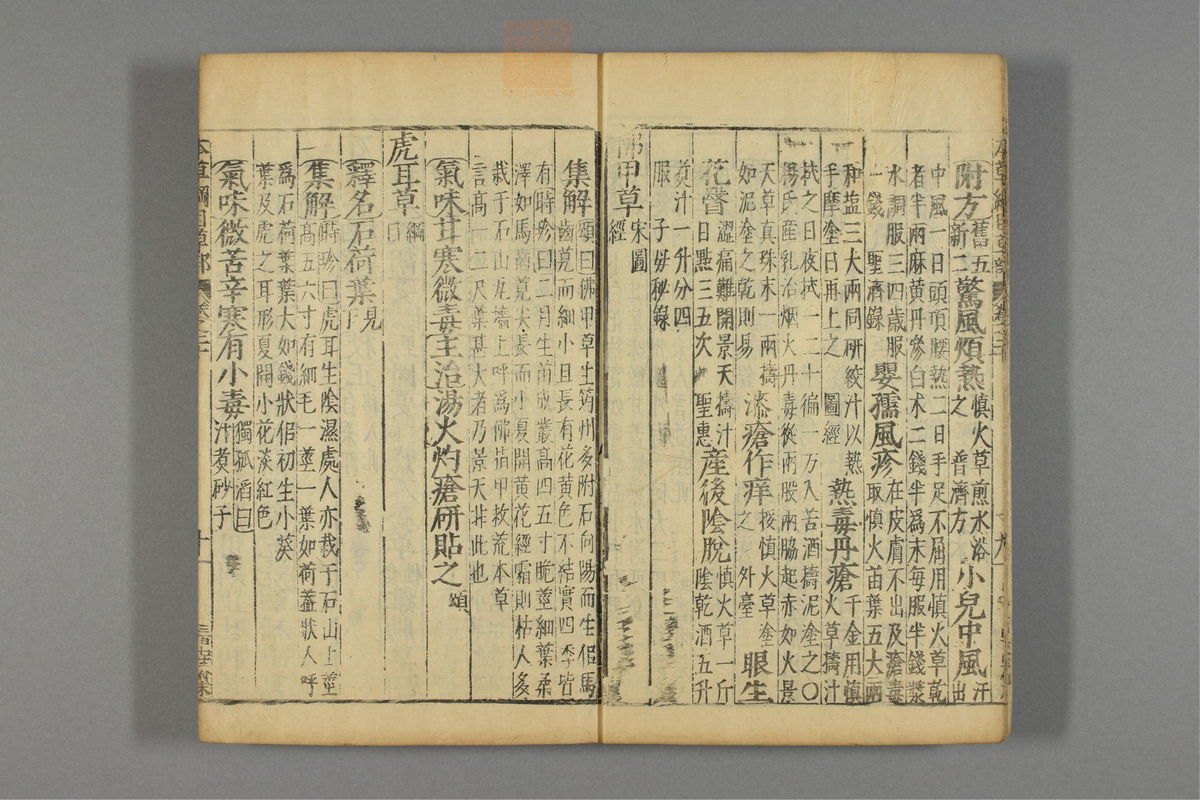 附方舊五新二驚風煩熱慎火草煎水浴之 普濟方小兒中風汗出
中風一日頭項腰熱二日手足不屈用慎火草乾
者半兩麻黃丹參白术二錢半爲末每服半錢漿
水調服三四歲服一錢 聖濟錄嬰孺風疹在皮膚不出及瘡毒取慎火苗葉五大兩
和盐三大兩同研絞汁以熱手摩塗日再上之 圖經熱毒丹瘡千金用慎火草擣汁
拭之日夜拭一二十徧一方入苦酒擣泥塗之〇
楊氏産乳治烟火丹毒從兩股兩脇起赤如火景
天草真珠末一兩擣如泥塗之乾則易漆瘡作痒挼慎火草塗之 外臺眼生
花瞖澀痛難開景天擣汁日點三五次 聖惠産後陰脫慎火草一斤陰乾酒五升
煑汁一升分四服 子母秘錄
佛甲草宋圖經
集解頌曰佛甲草生筠州多附石向陽而生佀馬
齒莧而細小且長有花黃色不結實四季皆
有時珍曰二月生苗成叢高四五寸脆莖細葉柔
澤如馬齒莧尖長而小夏開黃花經霜則枯人多
栽于石山瓦墻上呼爲佛指甲救荒本草
言高一二尺葉甚大者乃景天非此也
氣味甘寒微毒主治湯火灼瘡研貼之頌
虎耳草綱目
釋名石荷葉見于
集解時珍曰虎耳生陰濕處人亦栽于石山上莖
高五六寸有細毛一莖一葉如荷蓋狀人呼
爲石荷葉葉大如錢狀佀初生小葵
葉及虎之耳形夏開小花淡紅色
氣味微苦辛寒有小毒獨孤滔曰汁煑砂子
本草綱目草部 卷之二十 十一